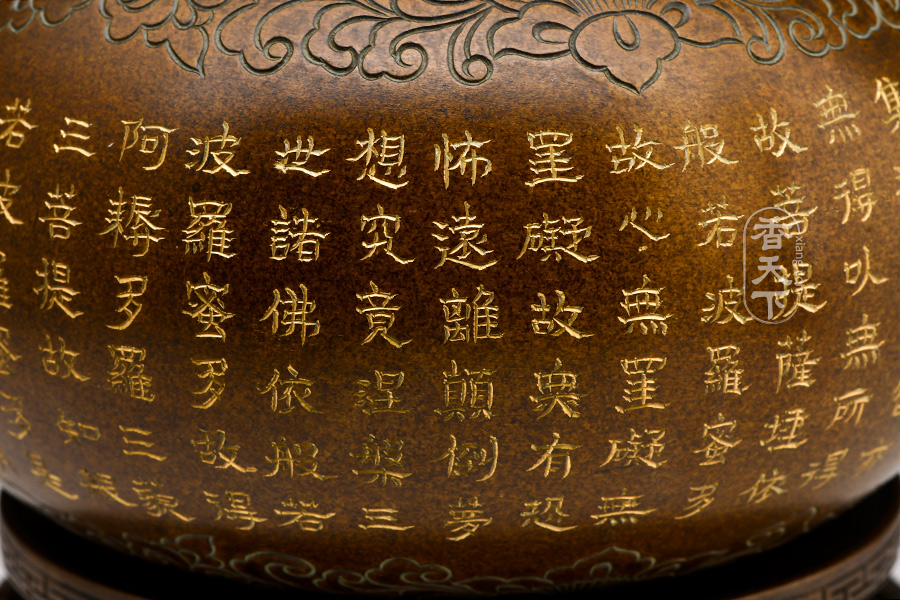 無得以無所得
故菩提薩埵依
般若波羅蜜多
故心無罣礙無
罣礙故無有恐
怖遠離顛倒夢
想究竟涅槃三
世諸佛依般若
波羅蜜多故得
阿耨多羅三藐
三菩提故知般
若波羅蜜多
香天下